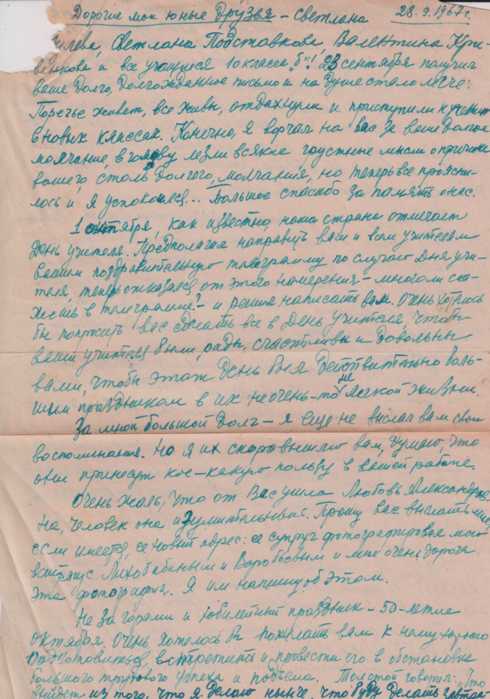 Дорогие мои юные друзья – Светлана 28.9.1967 г.
Светлана Подставкова, Валентина
и все учащиеся 10 класса "б"! 23 сентября получил
ваше долго, долгожданное письмо и на душе стало легче:
Поречье живет, все живы, отдохнули и приступили к учению
в новых классах. Конечно, я ворчал на вас за ваше долгое
молчание, в голову лезли всякие грустные мысли о причине
вашего столь долгого молчания, но теперь все проясни-
лось и я успокоился... Большое спасибо за память о нас.
1 октября, как известно наша страна отмечает
День учителя. Предполагал направить вам и всем учителям
вашим поздравительную телеграмму по случаю Дня учи-
теля, теперь отказался от этого намерения – много ли ска-
жешь в телеграмме? – и решил написать вам. Очень хотелось
бы попросить вас сделать все в День учителя, чтобы
ваши учителя были рады, счастливы и довольны
вами, чтобы этот день был действительно боль-
шим праздником в их не очень-то легкой жизни.
За мной большой долг – я еще не выслал вам свои
воспоминания. Но я их скоро вышлю вам, думаю, что
они принесут кое-какую пользу в вашей работе.
Очень жаль, что от Вас ушла Любовь Александров-
на, человек она изумительный. Прошу вас выслать мне,
если имеется, ее новый адрес: ее супруг фотографировал меня
вместе с и Воробьевым и мне очень дорога
эта фотография. Я им напишу об этом.
Не за горами и юбилейный праздник – 50-летие
октября. Очень хотелось пожелать вам к нему хорошо
подготовиться, встретить и провести его в обстановке
большого трудового успеха и подъема. Толстой говорил:
из того, что я делаю нынче, что буду делать завтра